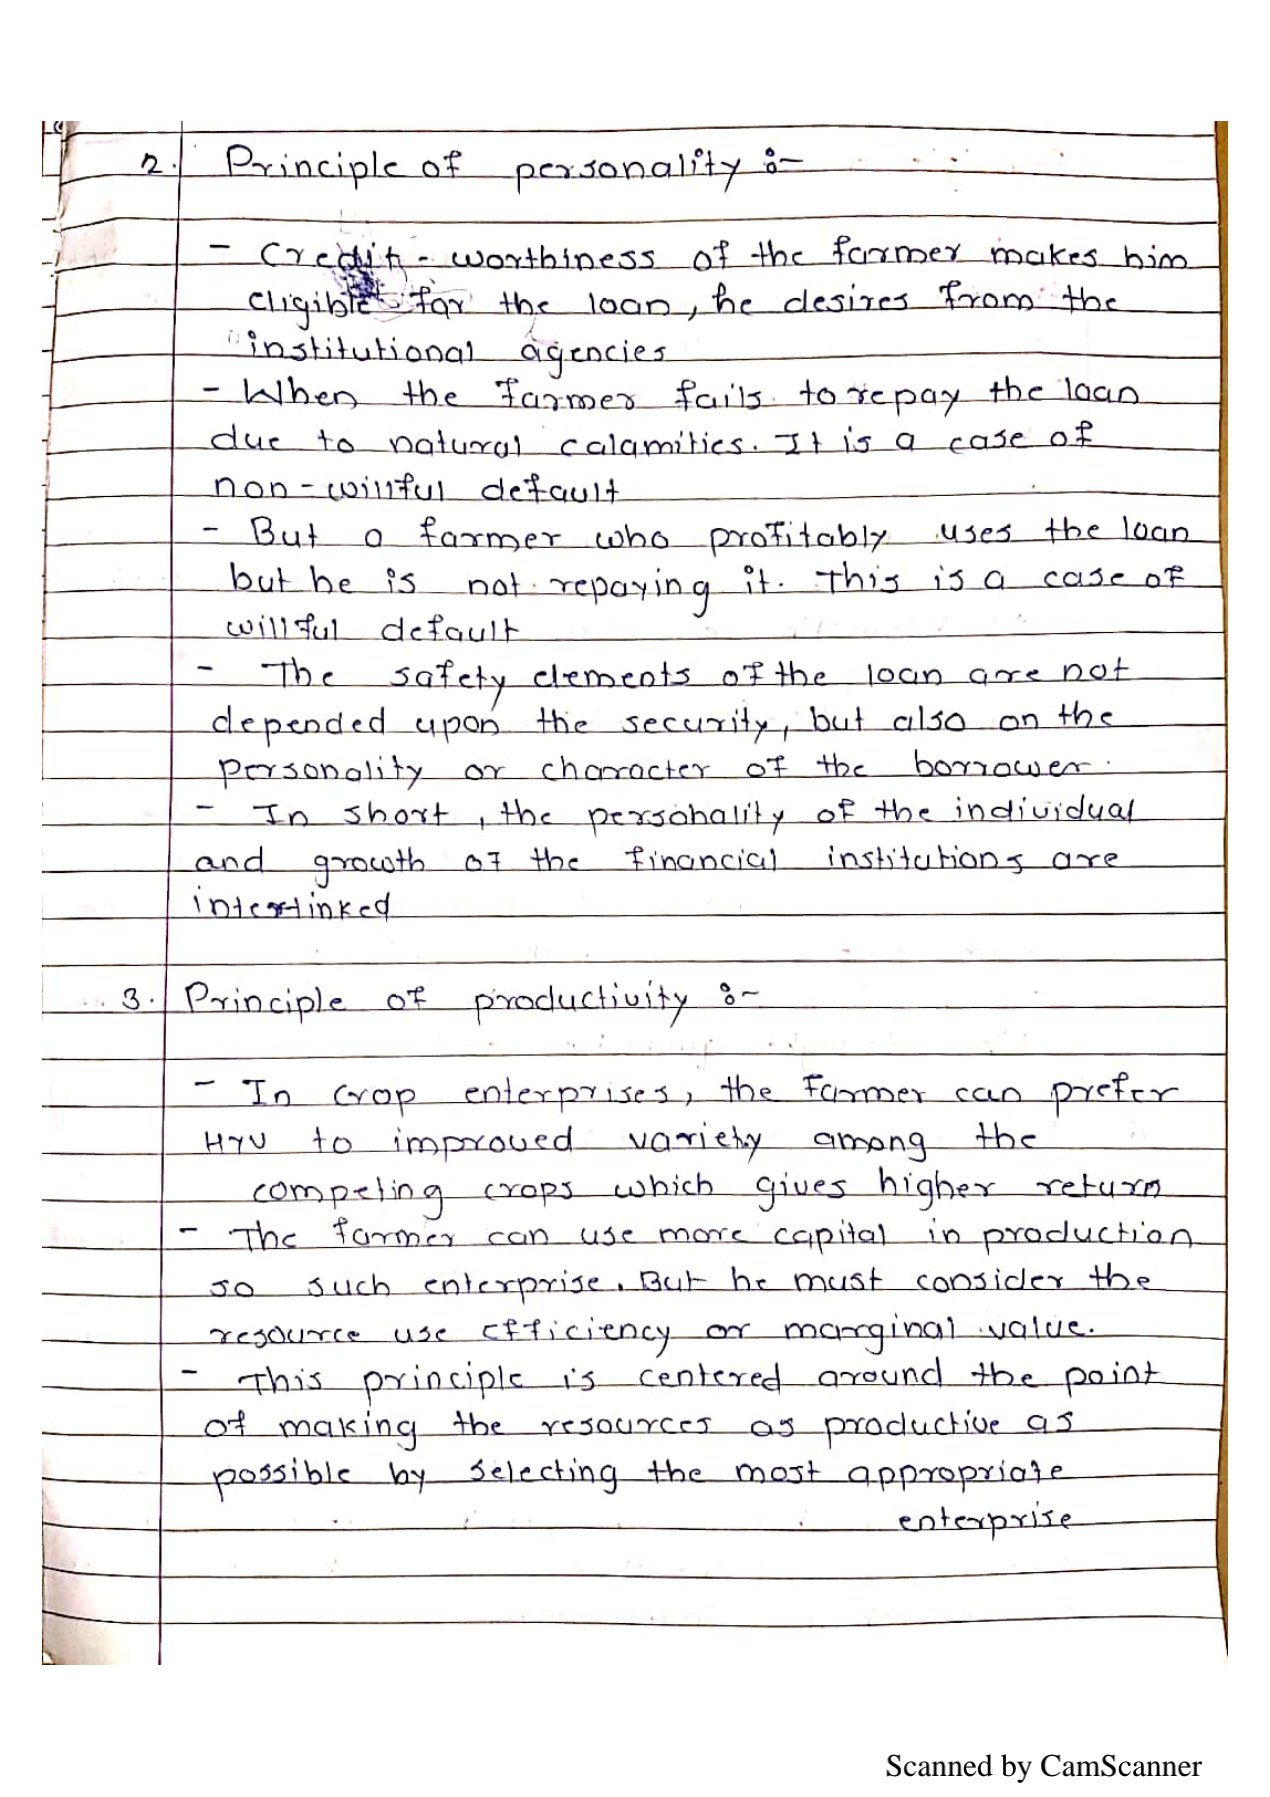 2. Principle of personality :-
- Credit - worthiness of the farmer makes him
eligible for the loan, he desires from the
institutional agencies
- When the farmer fails to repay the loan
due to natural calamities. It is a case of
non-willful default
- But a farmer who profitably uses the loan
but he is not repaying it. This is a case of
willful default
- The safety elements of the loan are not
depended upon the security, but also on the
personality or character of the borrower.
- In short, the personality of the individual
and growth of the financial institutions are
interlinked
3. Principle of productivity :-
- In crop enterprises, the farmer can prefer
HYV to improved variety among the
competing crops which gives higher return
- The farmer can use more capital in production
so such enterprise. But he must consider the
resource use efficiency or marginal value.
- This principle is centered around the point
of making the resources as productive as
possible by selecting the most appropriate
enterprise
Scanned by CamScanner